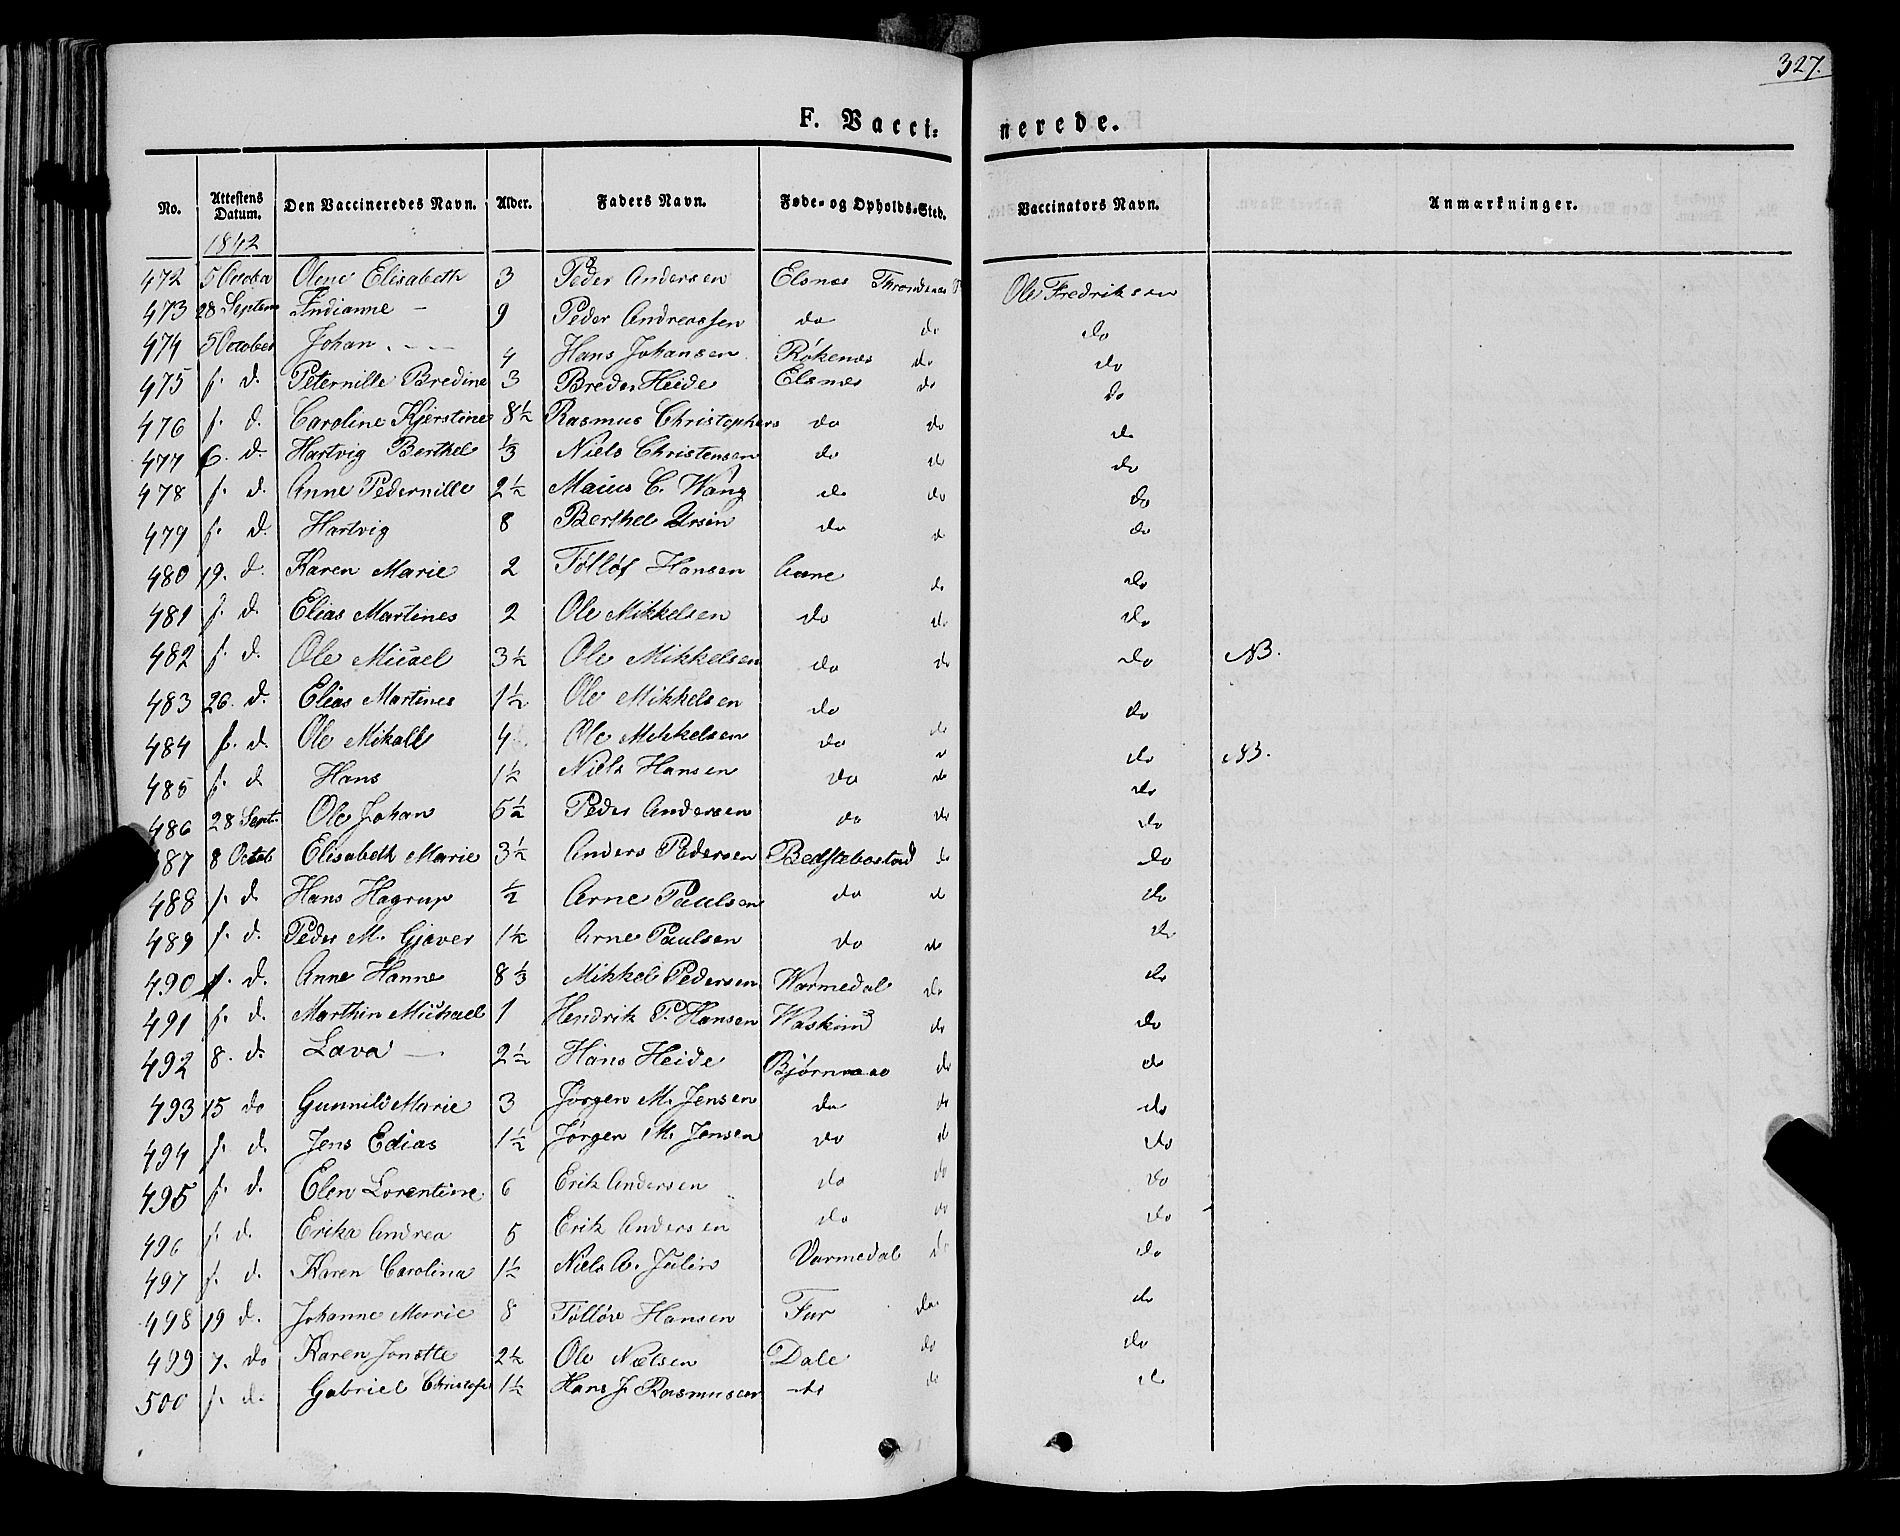 327.
F. Vacci- nerede.
No. Attestens Datum. Den Vaccineredes Navn. Alder. Faders Navn. Føde- og Opholds-Sted. Vaccinators Navn. Anmærkninger.
1842
472 5 October Oline Elisabeth 3 Peder Andersen Elsnes Throndenes Ole Fredriksen
473 28 Septem Indianne - 9 Peder Andreassen do do do
474 5 October Johan - - - 4 Hans Johansen Røkenes do do
475 f. d. Peternille Bredine 3 Breder Heide Elsnes do do
476 f. d. Caroline Kjerstine 8½ Rasmus Christophers do do do
477 6. d. Hartvig Berthel ⅓ Niels Christensen do do do
478 f. d. Anne Pedernille 2½ Maius C. Wang do do do
479 f. d. Hartvig 8 Berthel Ursin do do do
480 19. d. Karen Marie 2 Tølløf Hansen do do
481 f. d. Elias Martines 2 Ole Mikkelsen do do do
482 f. d. Ole Micael 3½ Ole Mikkelsen do do do NB.
483 26. d. Elias Martines 1½ Ole Mikkelsen do do do
484 f. d. Ole Mikall 4 Ole Mikkelsen do do do NB.
485 f. d Hans 1½ Niels Hansen do do do
486 28 Sept. Ole Johan 5½ Peder Andersen do do do
487 8 Octob Elisabeth Marie 3½ Anders Pedersen Bedstebostad do do
488 f. d. Hans Hagrup ½ Arne Paulsen do do do
489 f. d. Peder M. Gjæver 1½ Arne Paulsen do do do
490 f. d. Anne Hanne 8⅓ Mikkel Pedersen Warmedal do do
491 f. d. Marthin Michael 1 Hendrik P. Hansen do do
492 8. d. Lava - 2½ Hans Heide do do
493 15 do Gunnild Marie 3 Jørgen M. Jensen do do do
494 f. d. Jens Edias 1½ Jørgen M. Jensen do do do
495 f. d. Elen Lorentine 6 Erik Andersen do do do
496 f. d. Erika Andrea 5 Erik Andersen do do do
497 f. d. Karen Carolina 1½ Niels A. Julin Varmedal do do
498 19 d. Johanne Marie 8 Tølløv Hansen do do
499 7. do Karen Jonette 2½ Ole Nielsen Dale do do
500 f. d. Gabriel Christofe 1½ Hans J. Rasmussen do do do